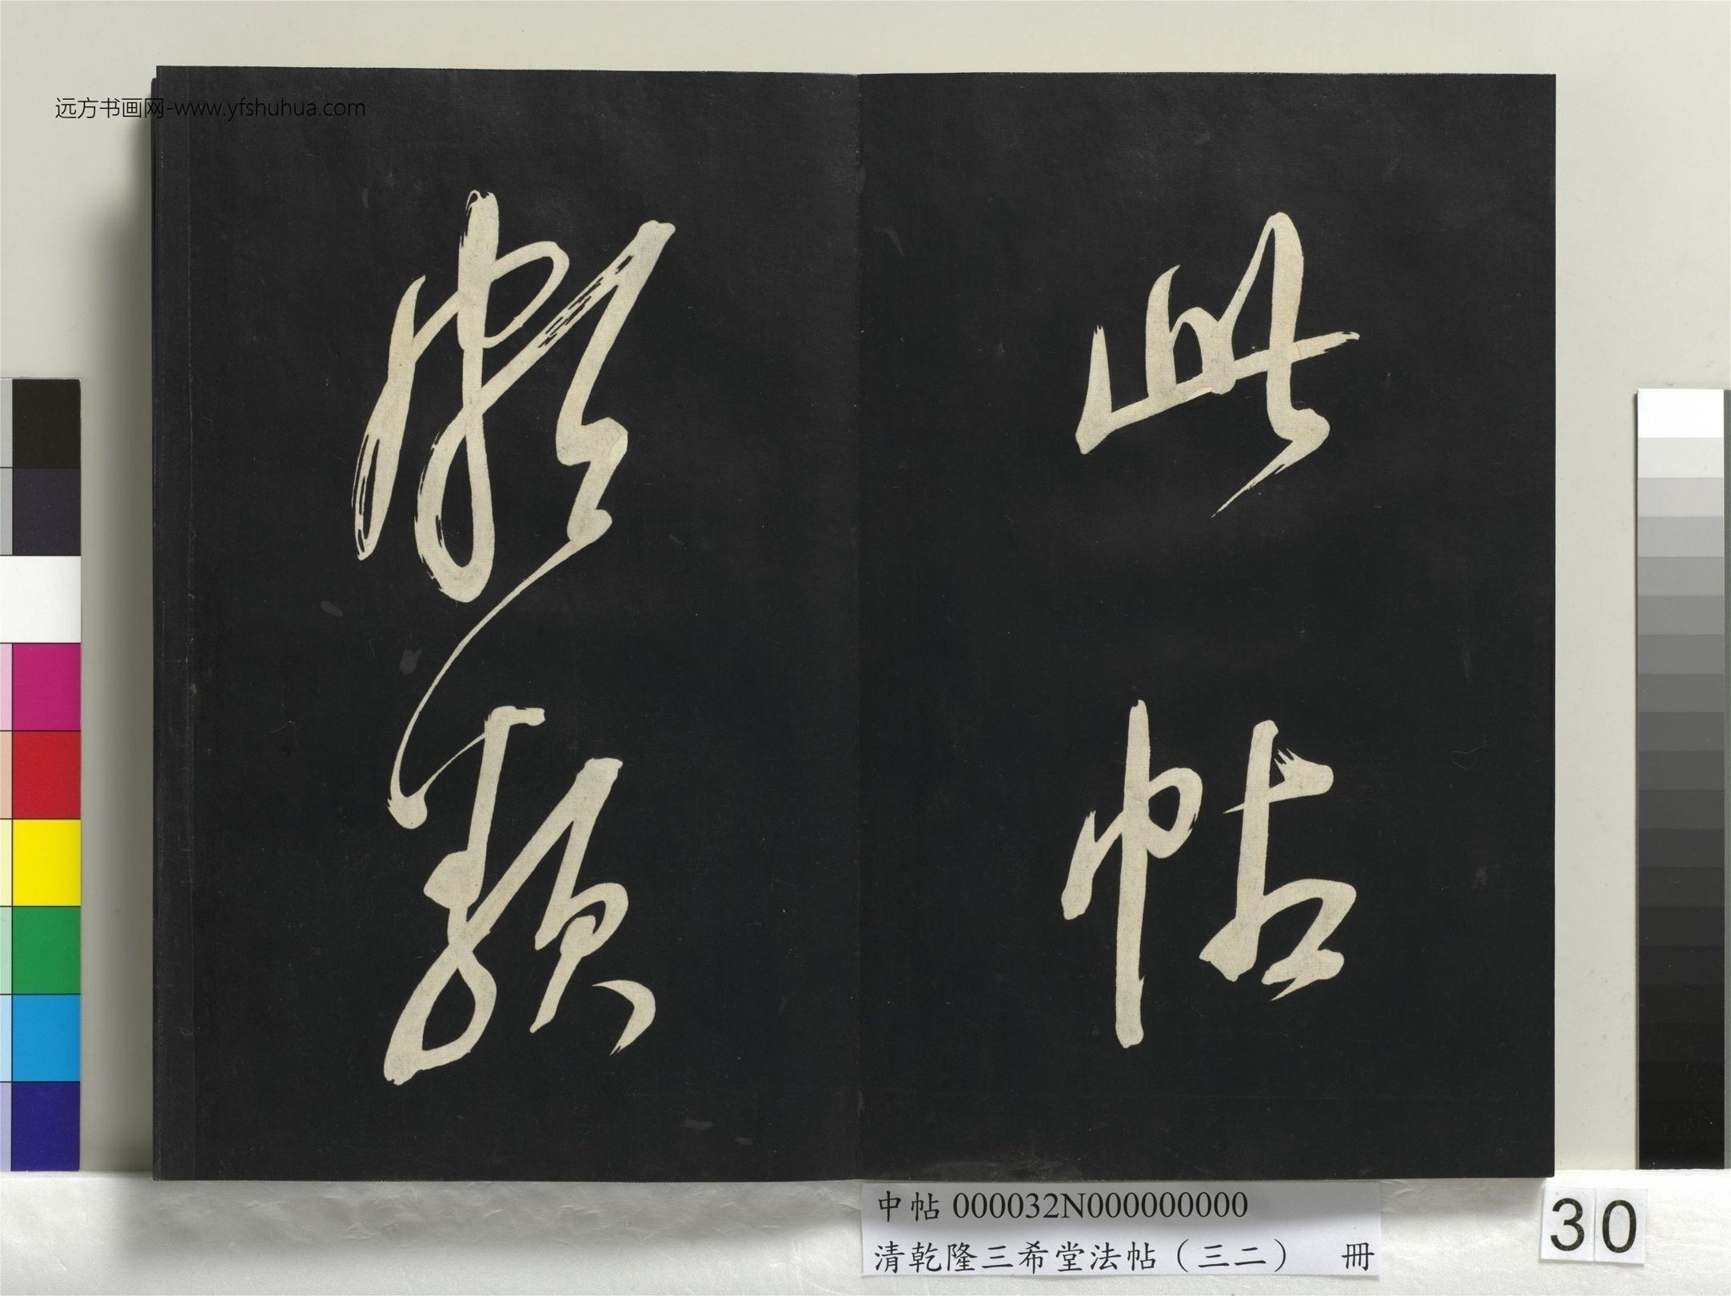 远方书画网-www.yfshuhua.com
此帖
頗類
中帖 000032N000000000
清乾隆三希堂法帖（三二） 冊
30